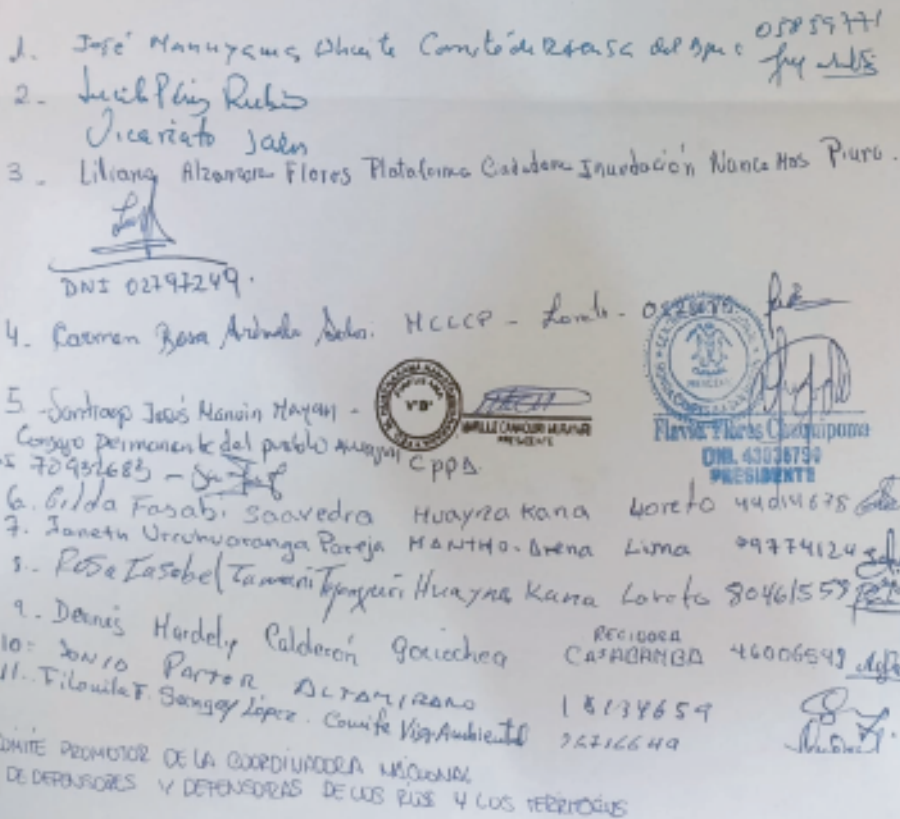 1. José Manuyama Ahuite Comité de Defensa del Agua 05859771
2. Lucila Pérez Rubio
Vicariato Jaén
3. Liliana Alzamora Flores Plataforma Inundación Nunca Mas Piura.
DNI 02797249.
4. Carmen Rosa HCCCP - Loreto -
5. Santiago Jesús Manuin Mayan -
Consejo permanente del pueblo Awajun CPPA
70952683 -
VºBº
PRESIDENTE
Flavia Flores Chuquipoma
DNI. 43036790
PRESIDENTE
6. Gilda Fasabi Saavedra Huayna Kana Loreto 44014678
7. Janeth Urcuhuaranga Pareja MANTHO. Arena Lima 09774124
8. Rosa Isabel Tamani Huayna Kana Loreto 80461559
9. Dennis Hardely Calderón Goicochea REGIDORA
CAJABAMBA 46006549
10: PASTOR ALTAMIRANO 18134659
11. Filonila F. López. Comite Vig. Ambiental 26716649
COMITE PROMOTOR DE LA COORDINADORA NACIONAL
DE DEFENSORES Y DEFENSORAS DE LOS RIOS Y LOS TERRITORIOS